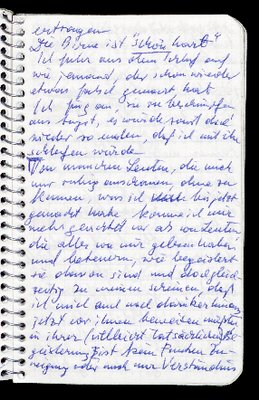 ertragen
Die Birne ist "schon hart"
Ich fuhr aus dem Schlaf auf
wie jemand, der schon wieder
etwas falsch gemacht hat
Ich fing an, sie zu beschimpfen
aus Angst, es würde sonst bald
wieder so enden, daß ich mit ihr
schlafen würde
Von manchen Leuten, die mich
nur ruhig anschauen, ohne zu
kennen, was ich bis jetzt
gemacht habe, komme ich mir
mehr geachtet vor als von Leuten
die alles von mir gelesen haben
und beteuern, wie begeistert
sie davon sind und doch gleich-
zeitig zu meinen scheinen, daß
ich mich auch noch darüber hinaus
jetzt vor ihnen beweisen müßte
in ihrer (vielleicht tatsächlichen) Be-
geisterung ist kein Funken Zu-
neigung oder auch nur Verständnis